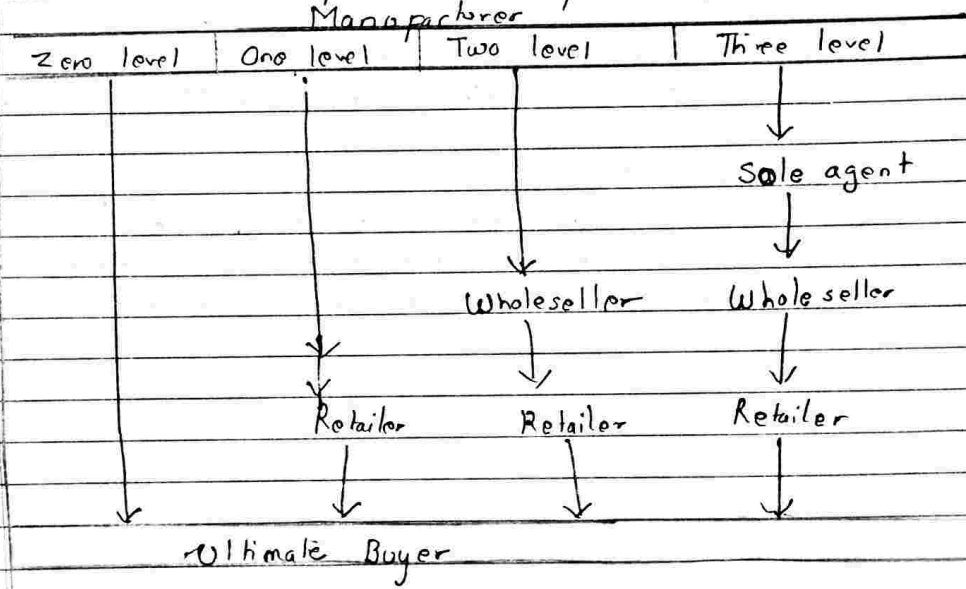 Manufacturer
Zero level One level Two level Three level
Sole agent
Wholeseller Wholeseller
Retailer Retailer Retailer
Ultimate Buyer